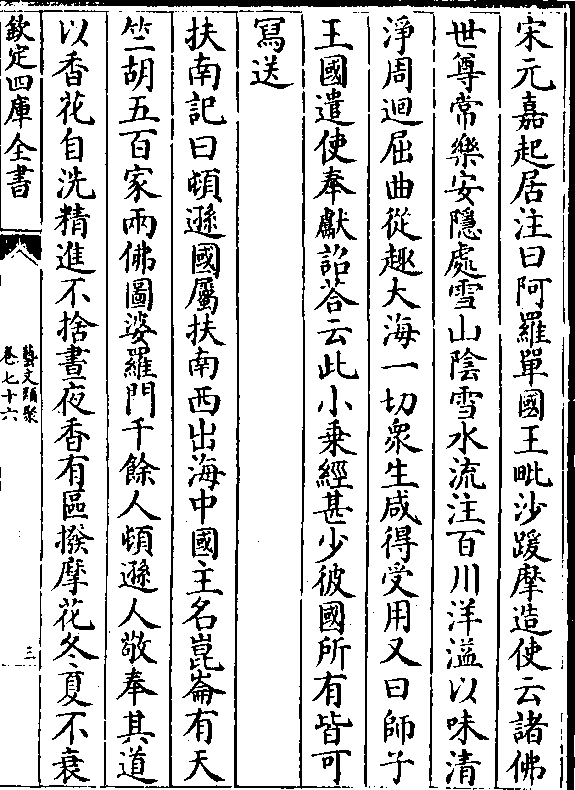 宋元嘉起居注曰阿羅單國王毗沙跋摩造使云諸佛
世尊常樂安隱處雪山陰雪水流注百川洋溢以味清
淨周迴屈曲從趣大海一切衆生咸得受用又曰師子
王國遣使奉獻詔荅云此小乗經甚少彼國所有皆可
寫送
扶南記曰頓遜國屬扶南西出海中國主名崑崙有天
竺胡五百家兩佛圖婆羅門千餘人頓遜人敬奉其道
以香花自洗精進不捨晝夜香有區撥摩花冬夏不衰
欽定四庫全書
藝文類聚
卷七十六
三